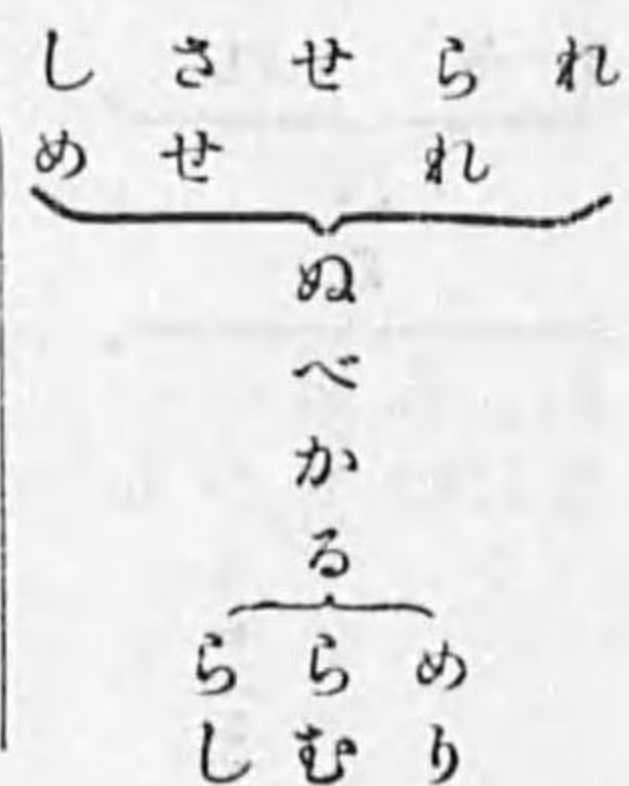 れ
られ
せ
させ
しめ
ぬべかる
めり
らむ
らし